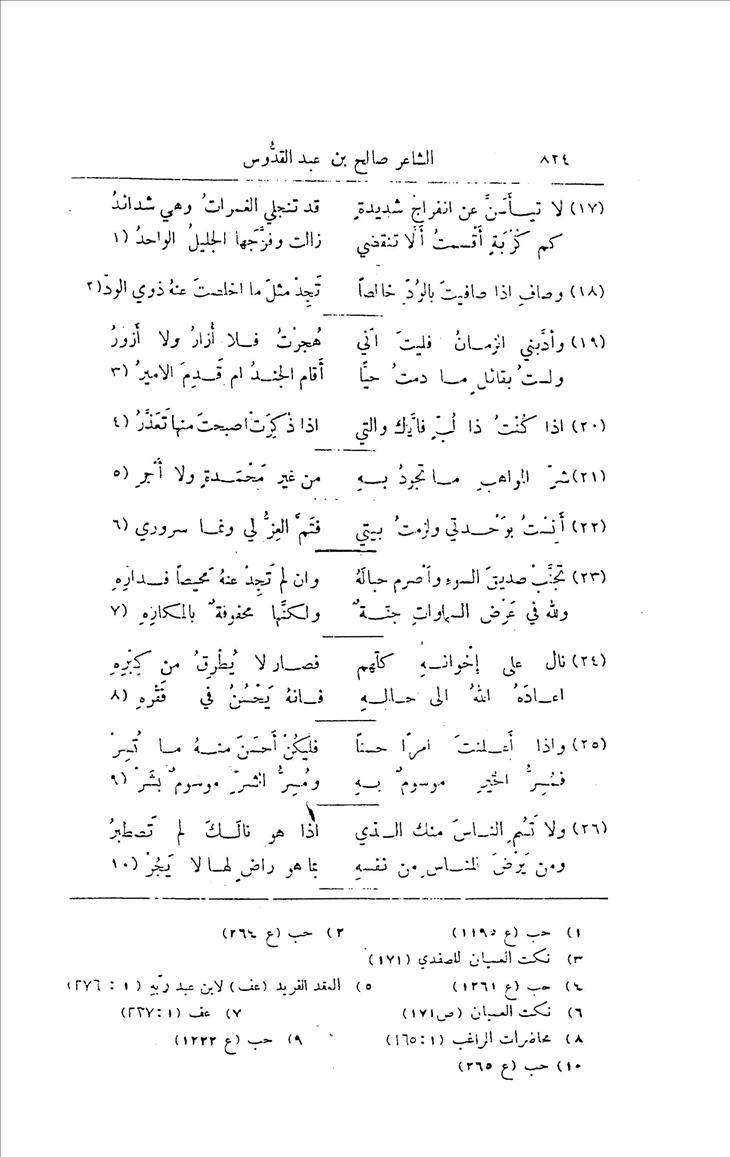 ٨٢٤ الشاعر صالح بن عبد القدُّوس
(١٧) لا تيأسَنَّ عن انفراجِ شديدةٍ قد تنجلي الغمراتُ وهي شدائدُ
كم كُرَبَةٍ أقسمتُ ألا تنقضي زالت وفرَّجها الجليلُ الواحدُ (١
(١٨) وصافِ اذا صافيتَ بالوُدِّ خالصاً تَجِدْ مثلَ ما اخلصتَ عنهُ ذوي الودّ (٢
(١٩) وأدَّبني الزمانُ فليتَ أني هُجرتُ فلا أُزارُ ولا أزورُ
ولستُ بقائلٍ ما دمتُ حيًّا أقام الجندُ ام قَدِمَ الاميرُ (٣
(٢٠) اذا كُنْتُ ذا لُبٍّ فايّاك والتي اذا ذُكِرَتْ اصبحتَ منها تَعَذَّرُ (٤
(٢١) شرّ المواهبِ ما تجودُ بهِ من غير مَحْمَدةٍ ولا أَجرِ (٥
(٢٢) أَنِستُ بوَحْدتي ولزمتُ بيتي فتَمَّ العِزُّ لي ونما سروري (٦
(٢٣) تجنَّبْ صديقَ السوءِ وأصرم حبالَهُ وان لم تَجِدْ عنهُ محيصاً فدارِهِ
ولله في عَرْضِ السماواتِ جنّةٌ ولكنَّها محفوفةٌ بالمكارِهِ (٧
(٢٤) نال على إخوانهِ كلّهم فصار لا يُطْرِقُ من كِبْرِهِ
اعادَهُ اللهُ الى حالهِ فانهُ يَحْسُنُ في فَقْرِهِ (٨
(٢٥) واذا أَعلنتَ امرًا حسناً فليَكُنْ أَحسَنَ منهُ ما تُسِرّْ
فمُسِرُّ الخيرِ موسومٌ بهِ ومُسِرُّ الشرِّ موسومٌ بشَرّْ (٩
(٢٦) ولا تَسُمِ الناسَ منك الذي اذا هو نالَكَ لم تَصطبرْ
ومن يَرْضَ للناسِ من نفسهِ بما هو راضٍ لها لا يَجُرْ (١٠
١) حب (ع ١١٩٥) ٢) حب (ع ٢٦٤)
٣) نكت العميان للصفدي (١٧١)
٤) حب (ع ١٢٦١) ٥) العقد الفريد (عف) لابن عبد ربّهِ (١ : ٢٧٦)
٦) نكت العميان (ص ١٧١) ٧) عف (١ : ٢٢٧)
٨) محاضرات الراغب (١ : ١٦٥) ٩) حب (ع ١٢٢٢)
١٠) حب (ع ٢٦٥)